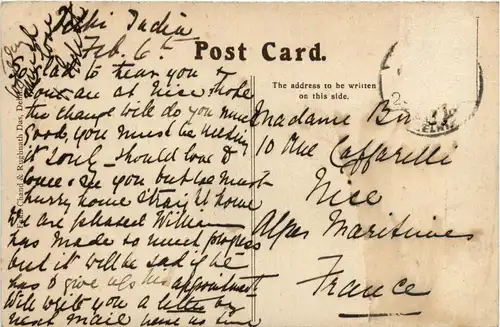 Delhi India
Feb. 6th
Post Card.
The address to be written
on this side.
Glad to hear you &
are at Nice & hope
the change will do you much
good, you must be needing
it Should love to
see you but we must
hurry home straight home
We are pleased William
has made so much progress
but it will be sad if he
has to give up his appointment
Will write you a letter by
next mail
Madame
10 Rue Caffarelli
Nice
Alpes Maritimes
France
Chand & Rughnath Das, Delhi
DELHI